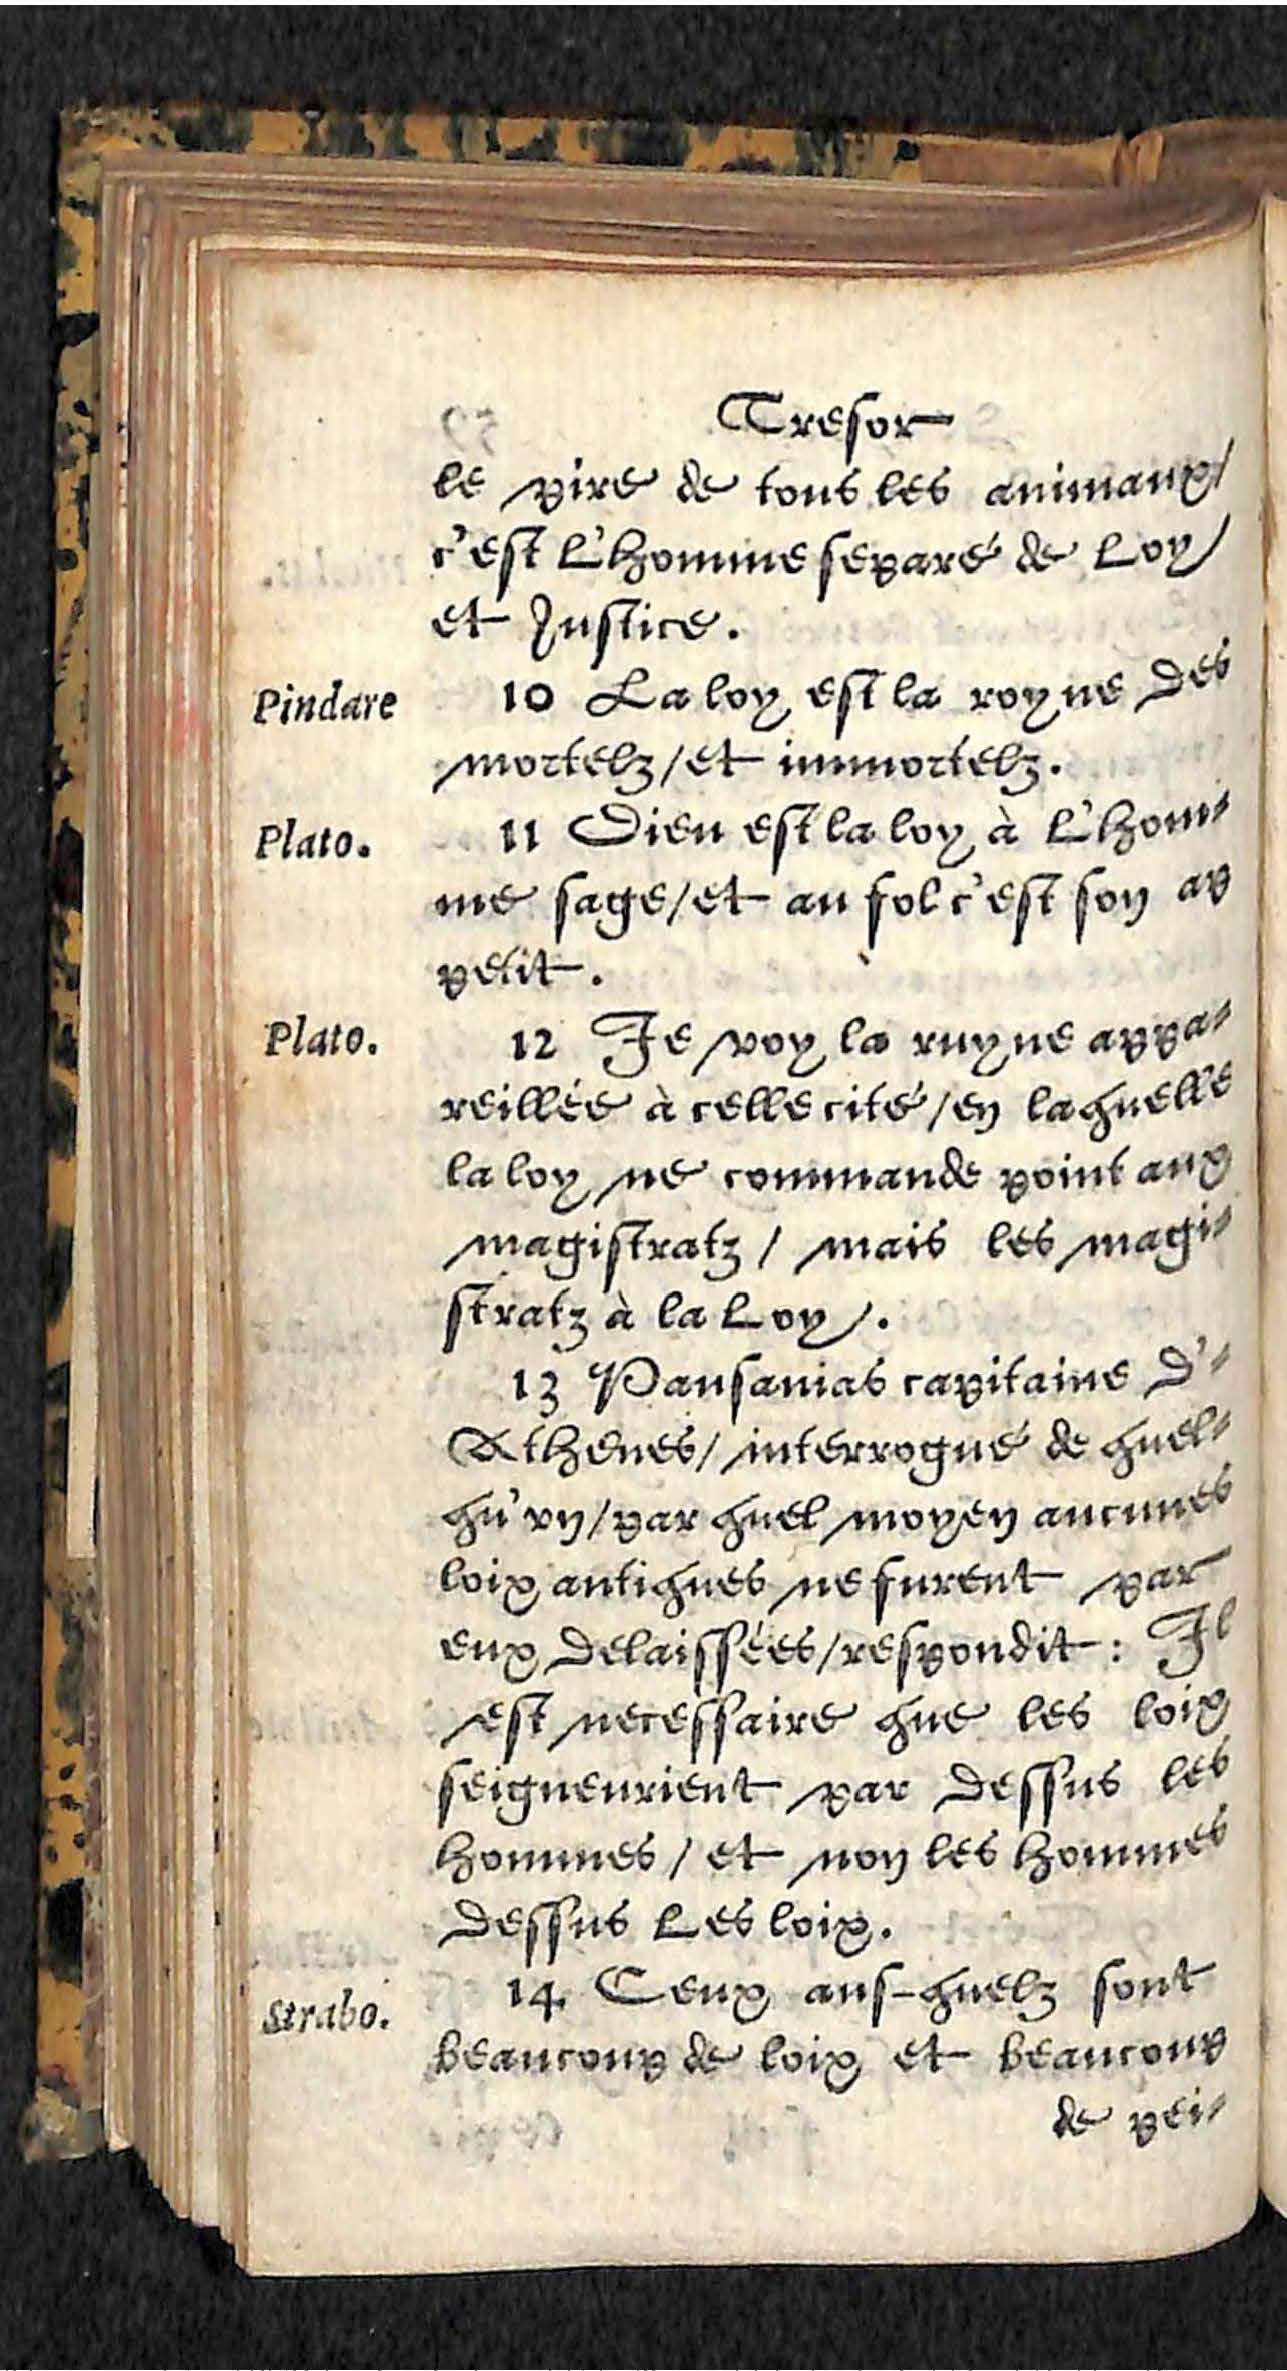 Tresor
le pire de tous les animaux/
c'est L'homme separé de Loy/
et Justice.
Pindare 10 La loy est la royne des
mortelz/et immortelz.
Plato. 11 Dieu est la loy à L'hom-
me sage/et au fol c'est son ap
petit.
Plato. 12 Je voy la ruyne appa-
reillée à celle cité/en laquelle
la loy ne commande point aux
magistratz/ mais les magi-
stratz à la Loy/.
13 Pausanias capitaine d'-
Athenes/ interrogué de quel-
qu'vn/par quel moyen aucunes
loix antiques ne furent par
eux delaissées/respondit: Il
est necessaire que les loix
seigneurient par dessus les
hommes/ et non les hommes
dessus Les loix.
Strabo. 14 Ceux aus-quelz sont
beaucoup de loix et beaucoup
de pei-